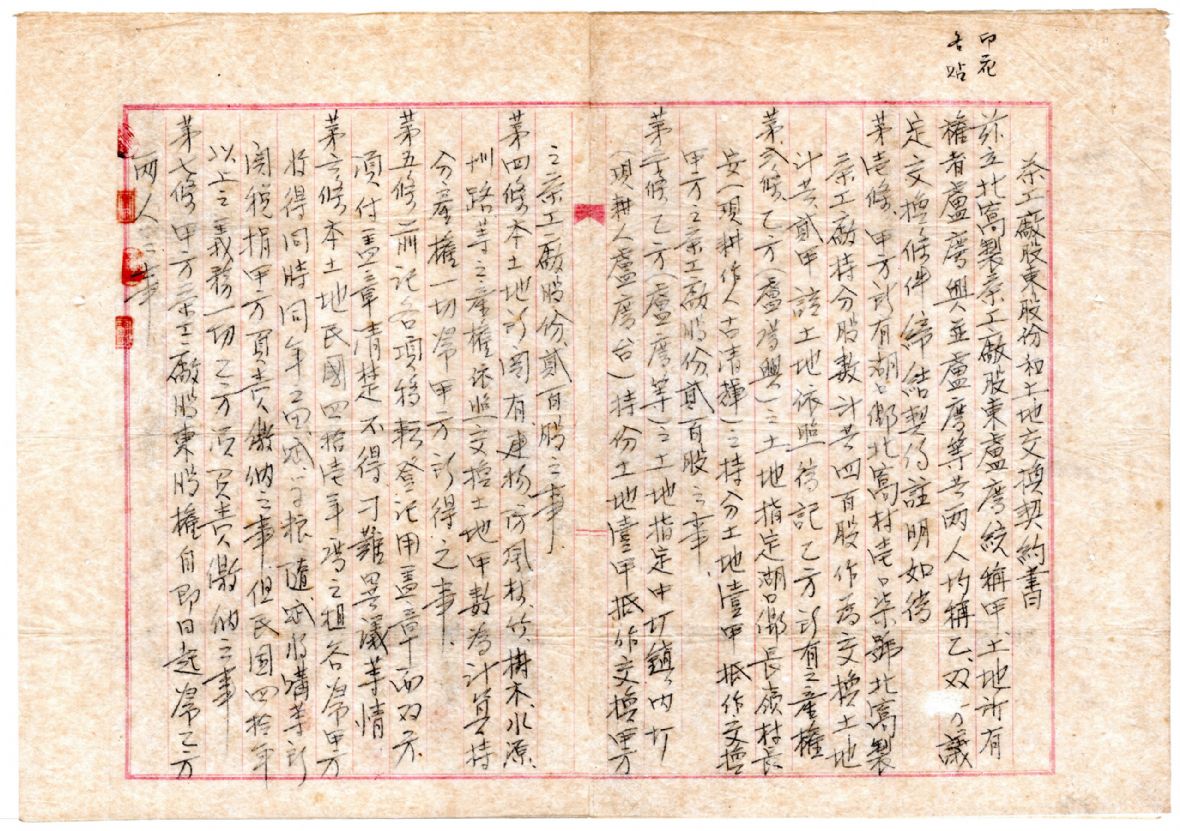 印花
各貼
茶工廠股東股份和土地交換契約書
茲立北窩製茶工廠股東盧慶統稱甲、土地所有
權者盧慶興並盧慶等共兩人均稱乙、双方議
定交換條件締結契約註明如待
第壱條、甲方所有湖口鄉北窩村壱口柒號北窩製
茶工廠持分股數計共四百股作為交換土地
計共貳甲該土地依照待記乙方所有之產權
第貳條乙方（盧慶興）之土地指定湖口鄉長嶺村長
安（現耕作人古清輝）之持分土地壹甲抵作交換
甲方之茶工廠股份貳百股之事、
第三條乙方（盧慶等）之土地指定中坜鎮內坜
（現耕人盧慶台）持份土地壹甲抵作交換甲方
之茶工廠股份貳百股之事、
第四條本土地所關有建物、防風林、竹、樹木、水源、
圳路等之產權依照交換土地甲數為計算持
分產權一切帰甲方所得之事、
第五條前記各項移転登記用蓋章而双方
須付蓋章清楚不得刁難異議等情
第六條本土地民國四拾壱年 之租谷帰甲方
收得同時同年之田賦、 糧隨賦水溝等所
關稅捐甲方負責繳納之事但民國四拾年
以上之義務一切乙方須負責繳納之事
第七條甲方茶工廠股東股權自即日起帰乙方
兩人之事